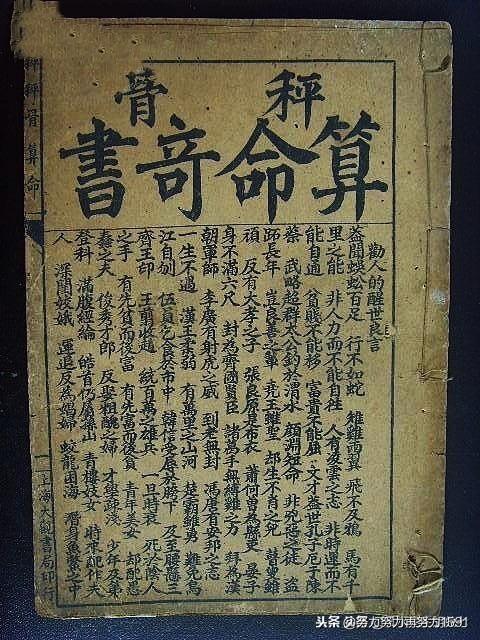 秤骨
算命奇書
勸人的醒世良言
蓋聞蜈蚣百足 行不如蛇 雄雞兩翼 飛不及鴉 馬有千
里之能 非人力而不能自往 人有凌雲之志 非時運而不
能自通 貧賤不能移 富貴不能屈 文才蓋世孔子厄于陳
蔡 武略超群太公釣於渭水 顏淵短命 非兇惡之徒 盜
跖長年 豈良善之輩 堯王雖聖 却生不肖之兒 瞽叟雖
頑 反有大孝之子 張良原是布衣 蕭何曾為縣吏 晏子
身不滿六尺 封為齊國賢臣 諸萬手無縛雞之力 拜為漢
朝軍師 李廣有射虎之威 到老無封 馮唐有安邦之志
一生不遇 漢王柔弱 有萬里之山河 楚霸雖勇 難免烏
江自刎 伍員乞食於市中 韓信受辱於胯下 及至腰懸三
齊王印 王翦收趙 統百萬之雄兵 一旦時衰 死於陰人
之手 有先貧而後富 有先富而後貧 青年美女 却配愚
蠢之夫 俊秀才郎 反娶粗醜之婦 才學疏淺 少年及第
登科 滿腹經綸 皓首仍屬深山 青樓妓女 時來配作夫
人 深閨嬌娥 運退反為娼婦 蛟龍困海 潛身魚鱉之中
上海大觀書局印行
秤骨算命
头条@努力努力再努力1591